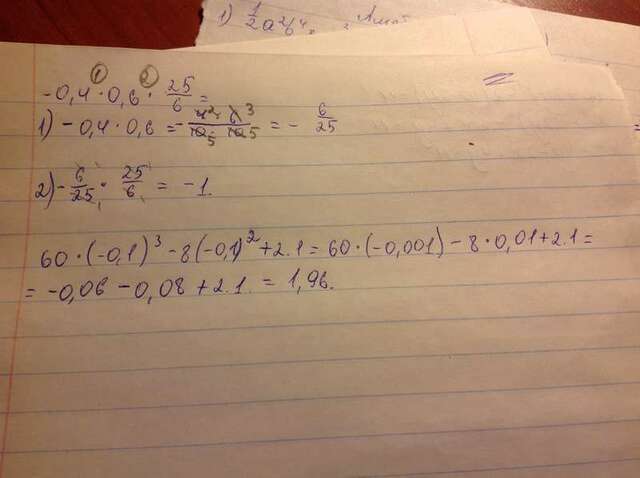 1) 1/2 a²b⁴
① ②
-0,4 · 0,6 · 25/6 =
1) -0,4 · 0,6 = - 4² · 6³ / 10₅ · 10₅ = - 6/25
2) - 6/25 · 25/6 = -1.
60 · (-0,1)³ - 8(-0,1)² + 2.1 = 60 · (-0,001) - 8 · 0,01 + 2.1 =
= -0,06 - 0,08 + 2.1. = 1,96.